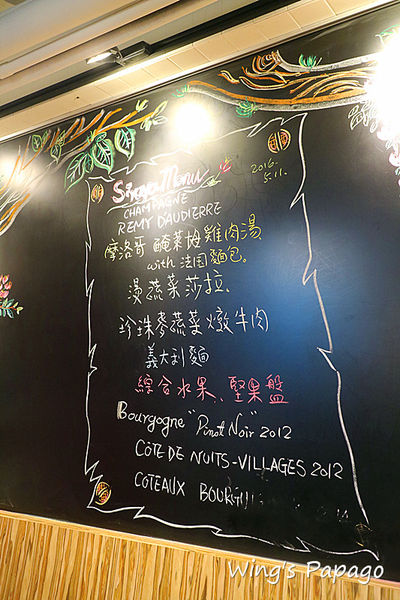 Menu
2016.
5.11.
CHAMPAGNE
REMY D'AUDIERRE
摩洛哥 醃萊姆雞肉湯
with 法國麵包。
溫蔬菜莎拉.
珍珠麥蔬菜燉牛肉
義大利麵
綜合水果、堅果盤
Bourgogne "Pinot Noir" 2012
CÔTE DE NUITS-VILLAGES 2012
COTEAUX
Wing's Papago